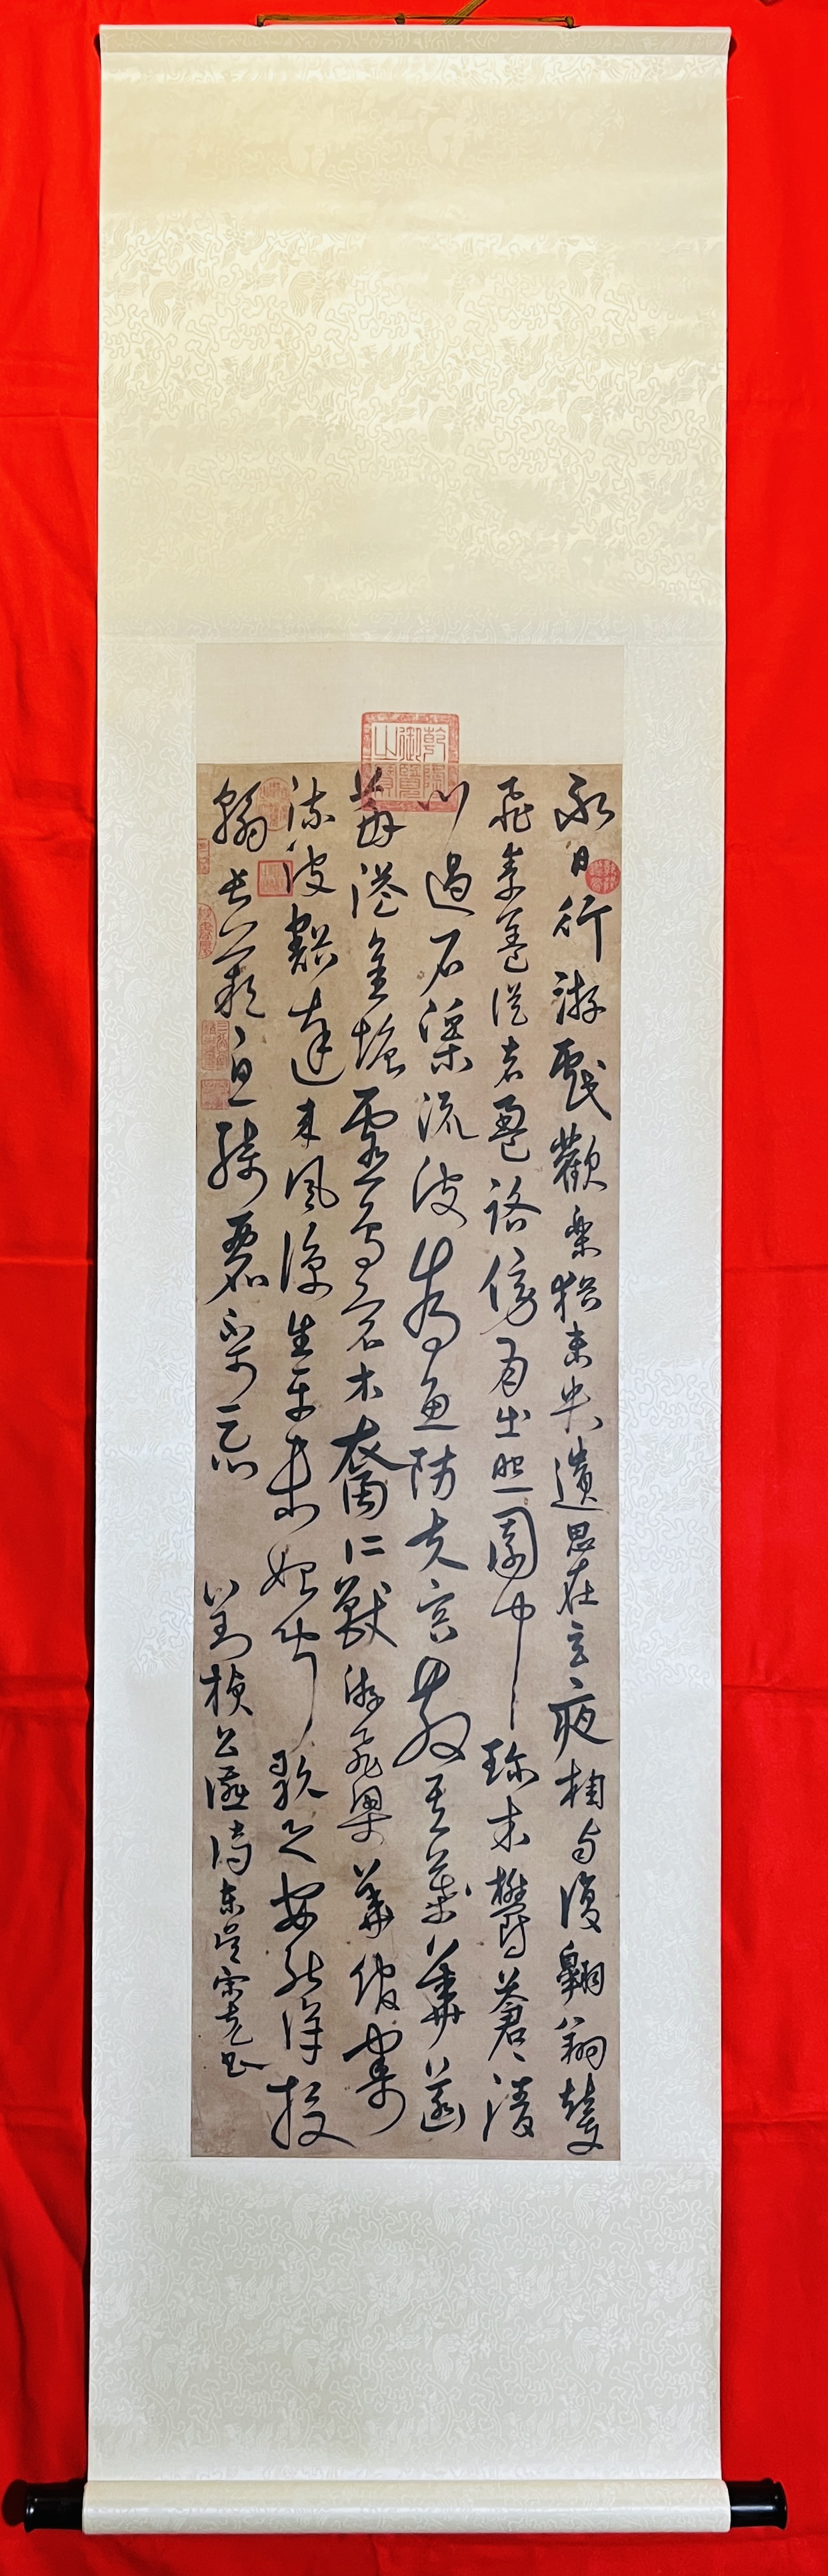 永日行游戲歡樂猶未央遺思在玄夜相與復翱翔輦
飛素蓋從者盈路傍月出照園中珍木鬱蒼々清
川過石渠流波為魚防夫容散其華菡
萏溢金塘靈鳥宿水裔仁獸游飛梁華館寄
流波豁達來風涼生平未始聞歌之安能詳投
翰長歎息綺麗不可忘
劉楨公讌詩東吳宋克書